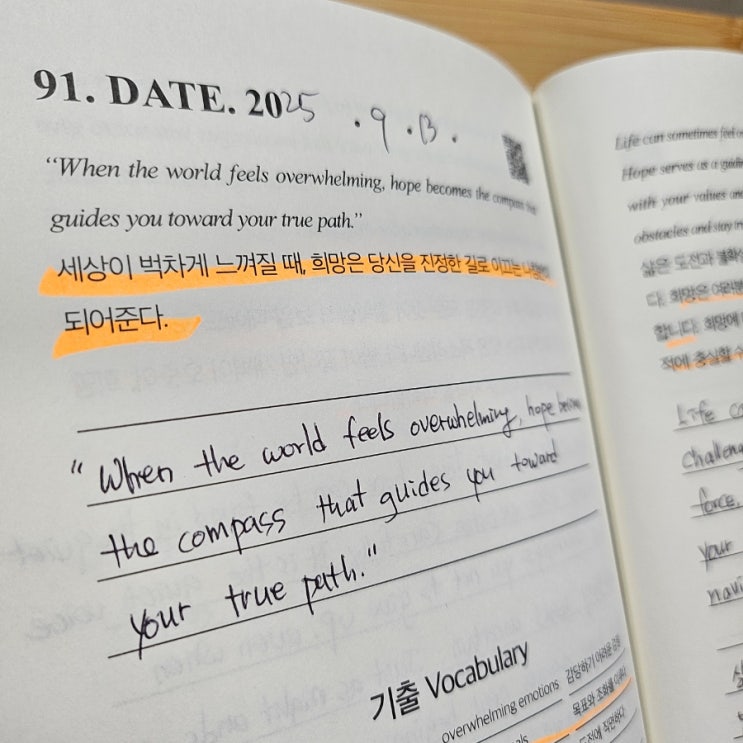 91. DATE. 2025 . 9 . 13 .
“When the world feels overwhelming, hope becomes the compass that
guides you toward your true path.”
세상이 벅차게 느껴질 때, 희망은 당신을 진정한 길로 이끄는 나침반이
되어준다.
“When the world feels overwhelming, hope becomes
the compass that guides you toward
your true path."
기출 Vocabulary
overwhelming emotions 감당하기 어려운 감정
목표와 조화를 이루다
도전에 직면하다
Life can sometimes feel
Hope serves as a
with your values
obstacles and stay
삶은 도전과
다. 희망은
합니다. 희망에
적에 충실할 수
Life
challen
force,
your
navi